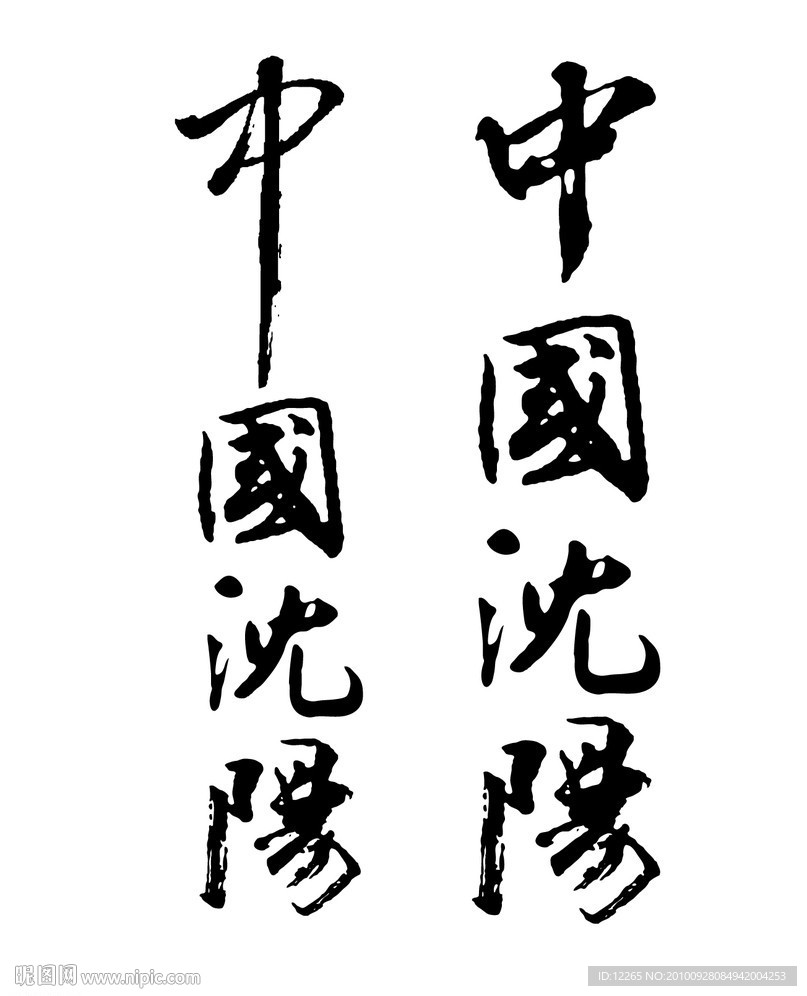 中國沈陽
中國沈陽
昵图网 www.nipic.com
ID:12265 NO:20100928084942004253